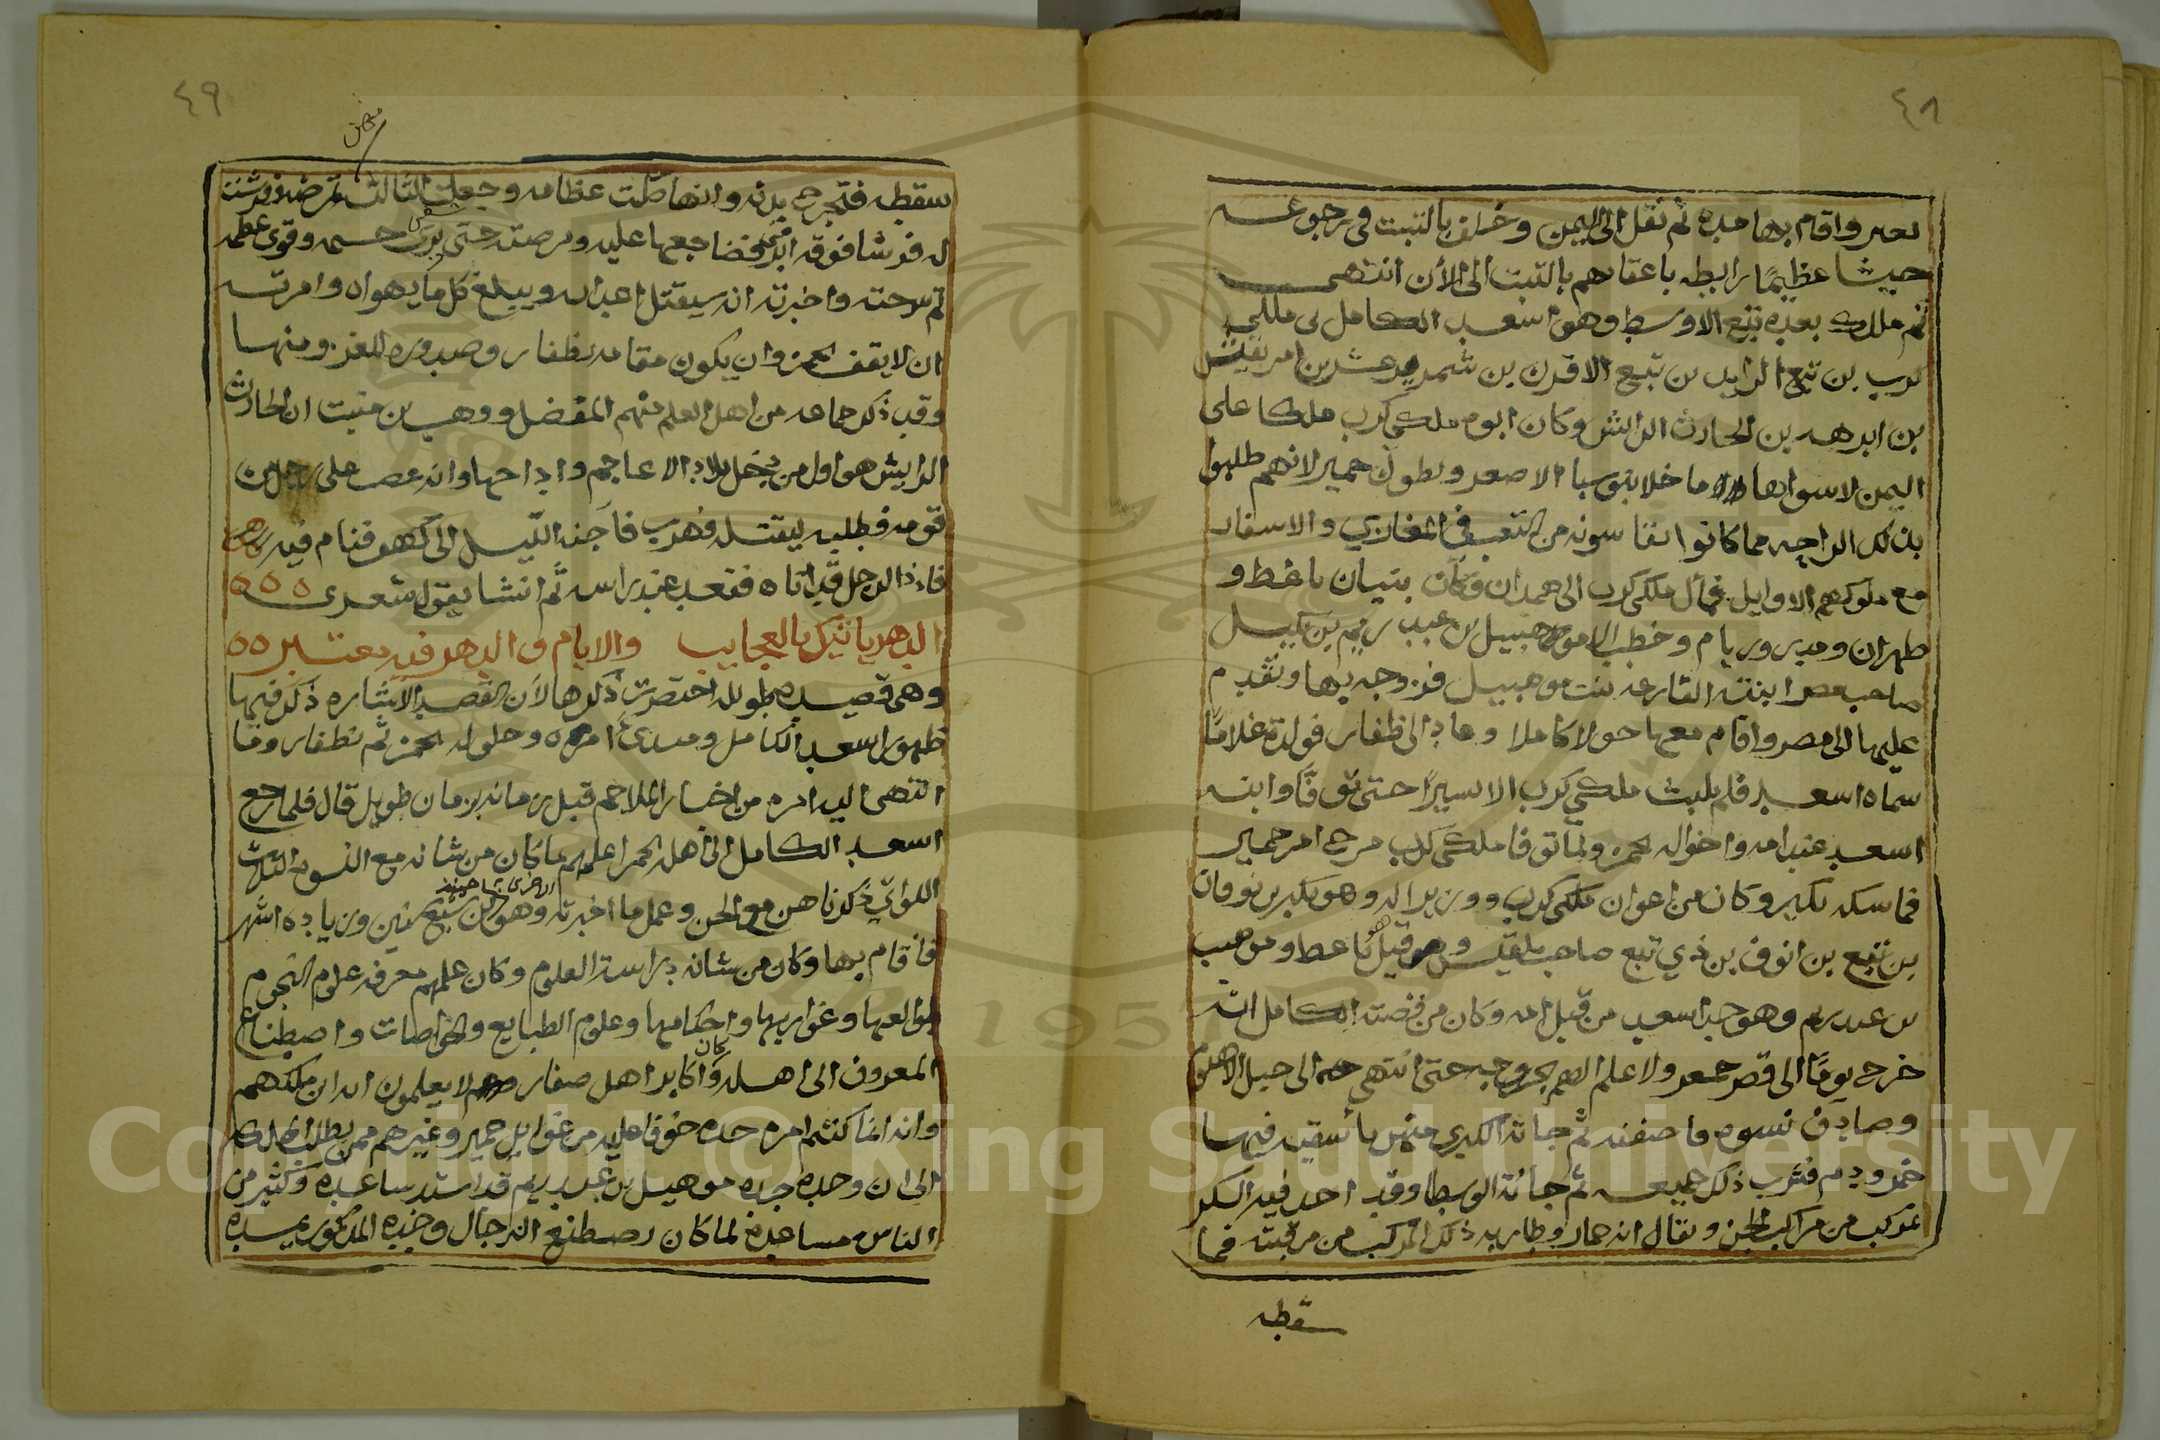 ٤٨
واقام بها مده ثم نقل الى اليمن وخلف بالتبت في رجوعه
جيشا عظيمًا رابطه باعقابهم بالتبت الى الأن انتهى
ثم ملك بعده تبع الاوسط وهو اسعد الكامل بن ملكي
كرب بن تبع الرايد بن تبع الاقرن بن شمر يرعش بن افريقيس
بن ابرهه بن الحارث الرائش وكان ابوه ملكي كرب ملكا على
اليمن لاسواها ما خلا بنو سبا الاصغر وبطون حمير لانهم طلبوا
بذلك الراحه مما كانوا يقاسونه من التعب في المغازي والاسفار
مع ملوكهم الاوايل فمال ملكي كرب الى همدان وكان بنيان ناعط و
ظهران ومدر وريام وخطب الا موهبيل بن عبد ريم بن
صاحب مصر ابنته الفارعه بنت موهبيل فزوجه بها وتقدم
عليها الى مصر واقام معها حولا كاملا وعاد الى ظفار فولدة غلامًا
سماه اسعد فلم يلبث ملكي كرب الا يسيرًا حتى توفا وابنه
اسعد عند امه واخواله بخمر ولما توفا ملكي كرب مرج امر حمير
فماسكه بكير وكان من اعوان ملكي كرب ووزيرا له وهو بكير بن نوفان
بن تبع بن انوف بن ذي تبع صاحب بلقيس وهو قيل ناعط وموهب
بن عبد ريم وهو جد اسعد من قبل امه وكان من قصة الكامل انه
خرج يومًا الى قصر ولا علم لاهله بخروجه حتى انتهى الى جبل الاهنوم
وصادف نسوه ثم جاته الكبرى منهن بأسقيه فيها
خمر ودم فشرب ذلك جميعه ثم جاته الوسطا وقد اخذ فيه السكر
بمركب من مراكب الجن ويقال انه حمار وطار به ذلك المركب من مرقبته فما
سقطه
٤٩
سقطه فتجرح بدنه وانهاظت عظامه وجعلت الثالثه تمرضه وفرشت
له فرشا فوقه ابر فضاجعها عليه ومرضته حتى بري جسمه وقوى عظمه
ثم سرحته واخبرته انه سيقتل اعداه ويبلغ كل ما يهواه وامرته
ان لا يقف بخمر وان يكون مقامه بظفار وصدوره للغزو منها
وقد ذكر جماعه من اهل العلم منهم المفضل ووهب بن منبت ان الحارث
الرايش هو اول من دخل بلاد الاعاجم واداحها وانه غصب على رجل من
قومه فطلبه ليقتله فهرب فأجنه الليل الى كهف فنام فيه
فاذا الرجل قد اتاه فقعد عند راسه ثم انشا يقول شعرى ٥ ٥ ٥
الدهر ياتيك بالعجايب والايام والدهر فيه معتبر ٥٥
وهي قصيده طويله اختصرت ذكرها لأن القصد الاشاره ذكر فيها
ظهور اسعد الكامل ومبدئ امره وحلوله بخمر ثم بظفار وما
انتهى اليه امره من اخبار الملاحم قبل زمانه بزمان طويل قال فلما رجع
اسعد الكامل الى اهله بخمر اعلمهم ما كان من شانه مع النسوه الثلاث
اللواتي ذكرنا هن من الجن وعمل ما اخبرته وهو ابن سبع سنين وزياده اشهر
فاقام بها وكان من شانه دراسة العلوم وكان علمهم معرفه علوم النجوم
طوالعها وغواربها واحكامها وعلوم الطبايع والخواصات واصطناع
المعروف الى اهله وكان اكابر اهل صفار لا يعلمون انه ابن ملكهم
وانه انما كتم امره جده خوفا عليه من غوايل حمير وغيرهم ممن يطلب
الى ان وحده جده موهبيل بن عبد ريم قد اشتد ساعده وكثير من
الناس مساعدة لما كان يصطنع الرجال وجده المذكور يمده